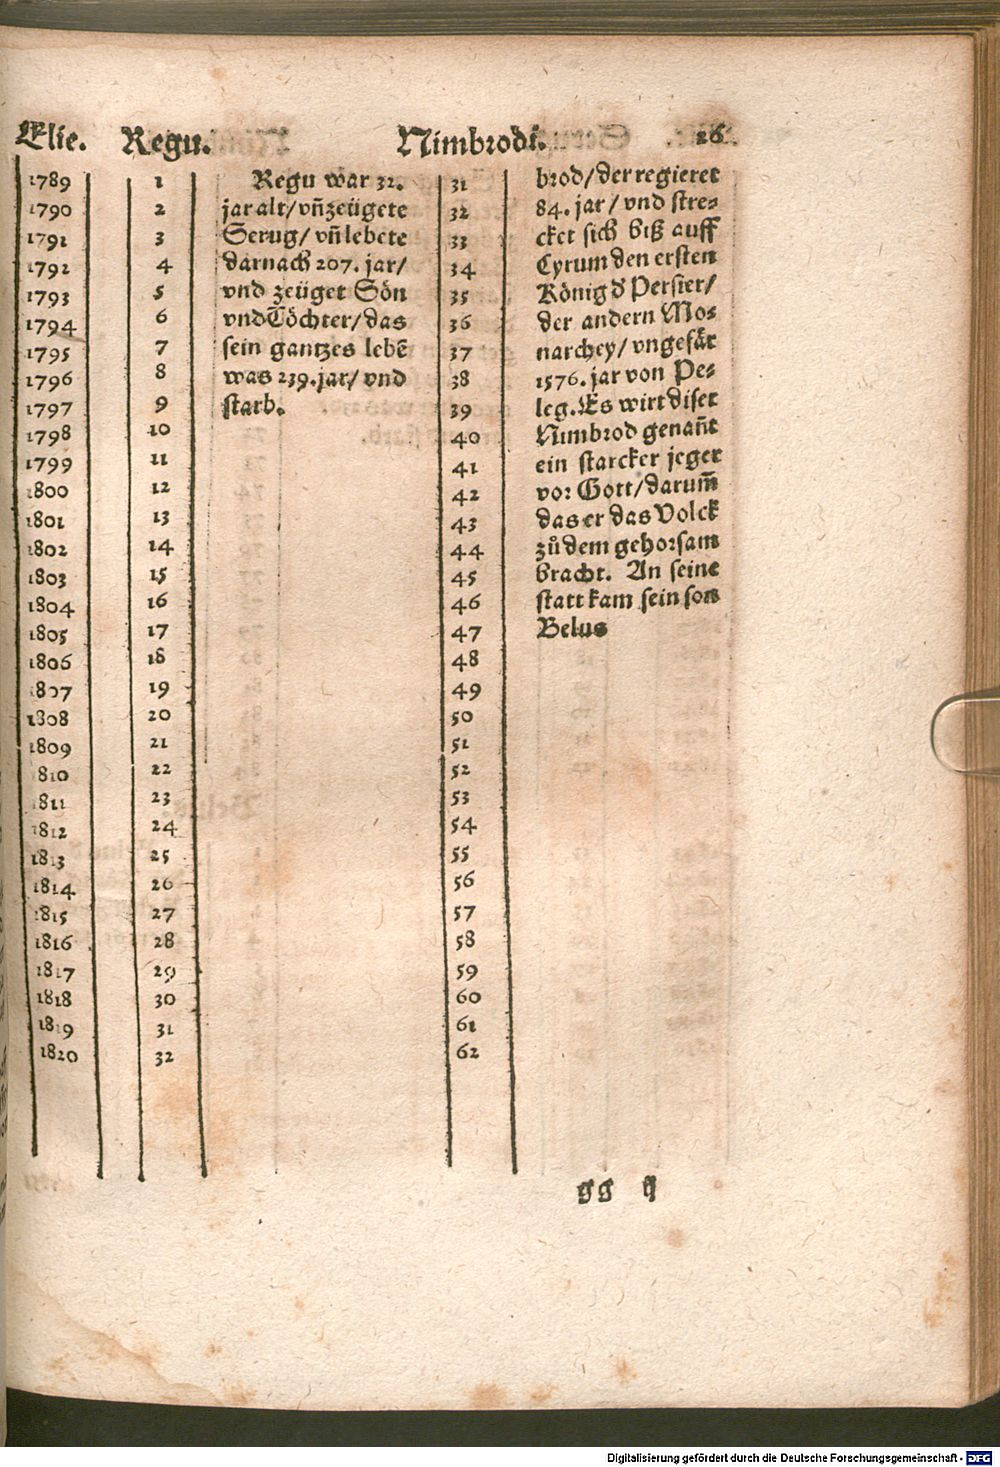 Elie. Regu. Nimbrodi. 26.
1789 1 Regu war 32. 31 brod/der regieret
1790 2 jar alt/ vñ zeügete 32 84. jar/ vnd stre-
1791 3 Serug/ vñ lebete 33 cket sich biß auff
1792 4 darnach 207. jar/ 34 Cyrum den ersten
1793 5 vnd zeüget Sön 35 König d' Persier/
1794 6 vnd Töchter/ das 36 der andern Mo-
1795 7 sein gantzes lebē 37 narchey/ vngefär
1796 8 was 239. jar/ vnd 38 1576. jar von Pe-
1797 9 starb. 39 leg. Es wirt diser
1798 10 40 Nimbrod genañt
1799 11 41 ein starcker jeger
1800 12 42 vor Gott/ darum̄
1801 13 43 das er das Volck
1802 14 44 zů dem gehorsam
1803 15 45 bracht. An seine
1804 16 46 statt kam sein son
1805 17 47 Belus
1806 18 48
1807 19 49
1808 20 50
1809 21 51
1810 22 52
1811 23 53
1812 24 54
1813 25 55
1814 26 56
1815 27 57
1816 28 58
1817 29 59
1818 30 60
1819 31 61
1820 32 62
gg
Digitalisierung gefördert durch die Deutsche Forschungsgemeinschaft - DFG